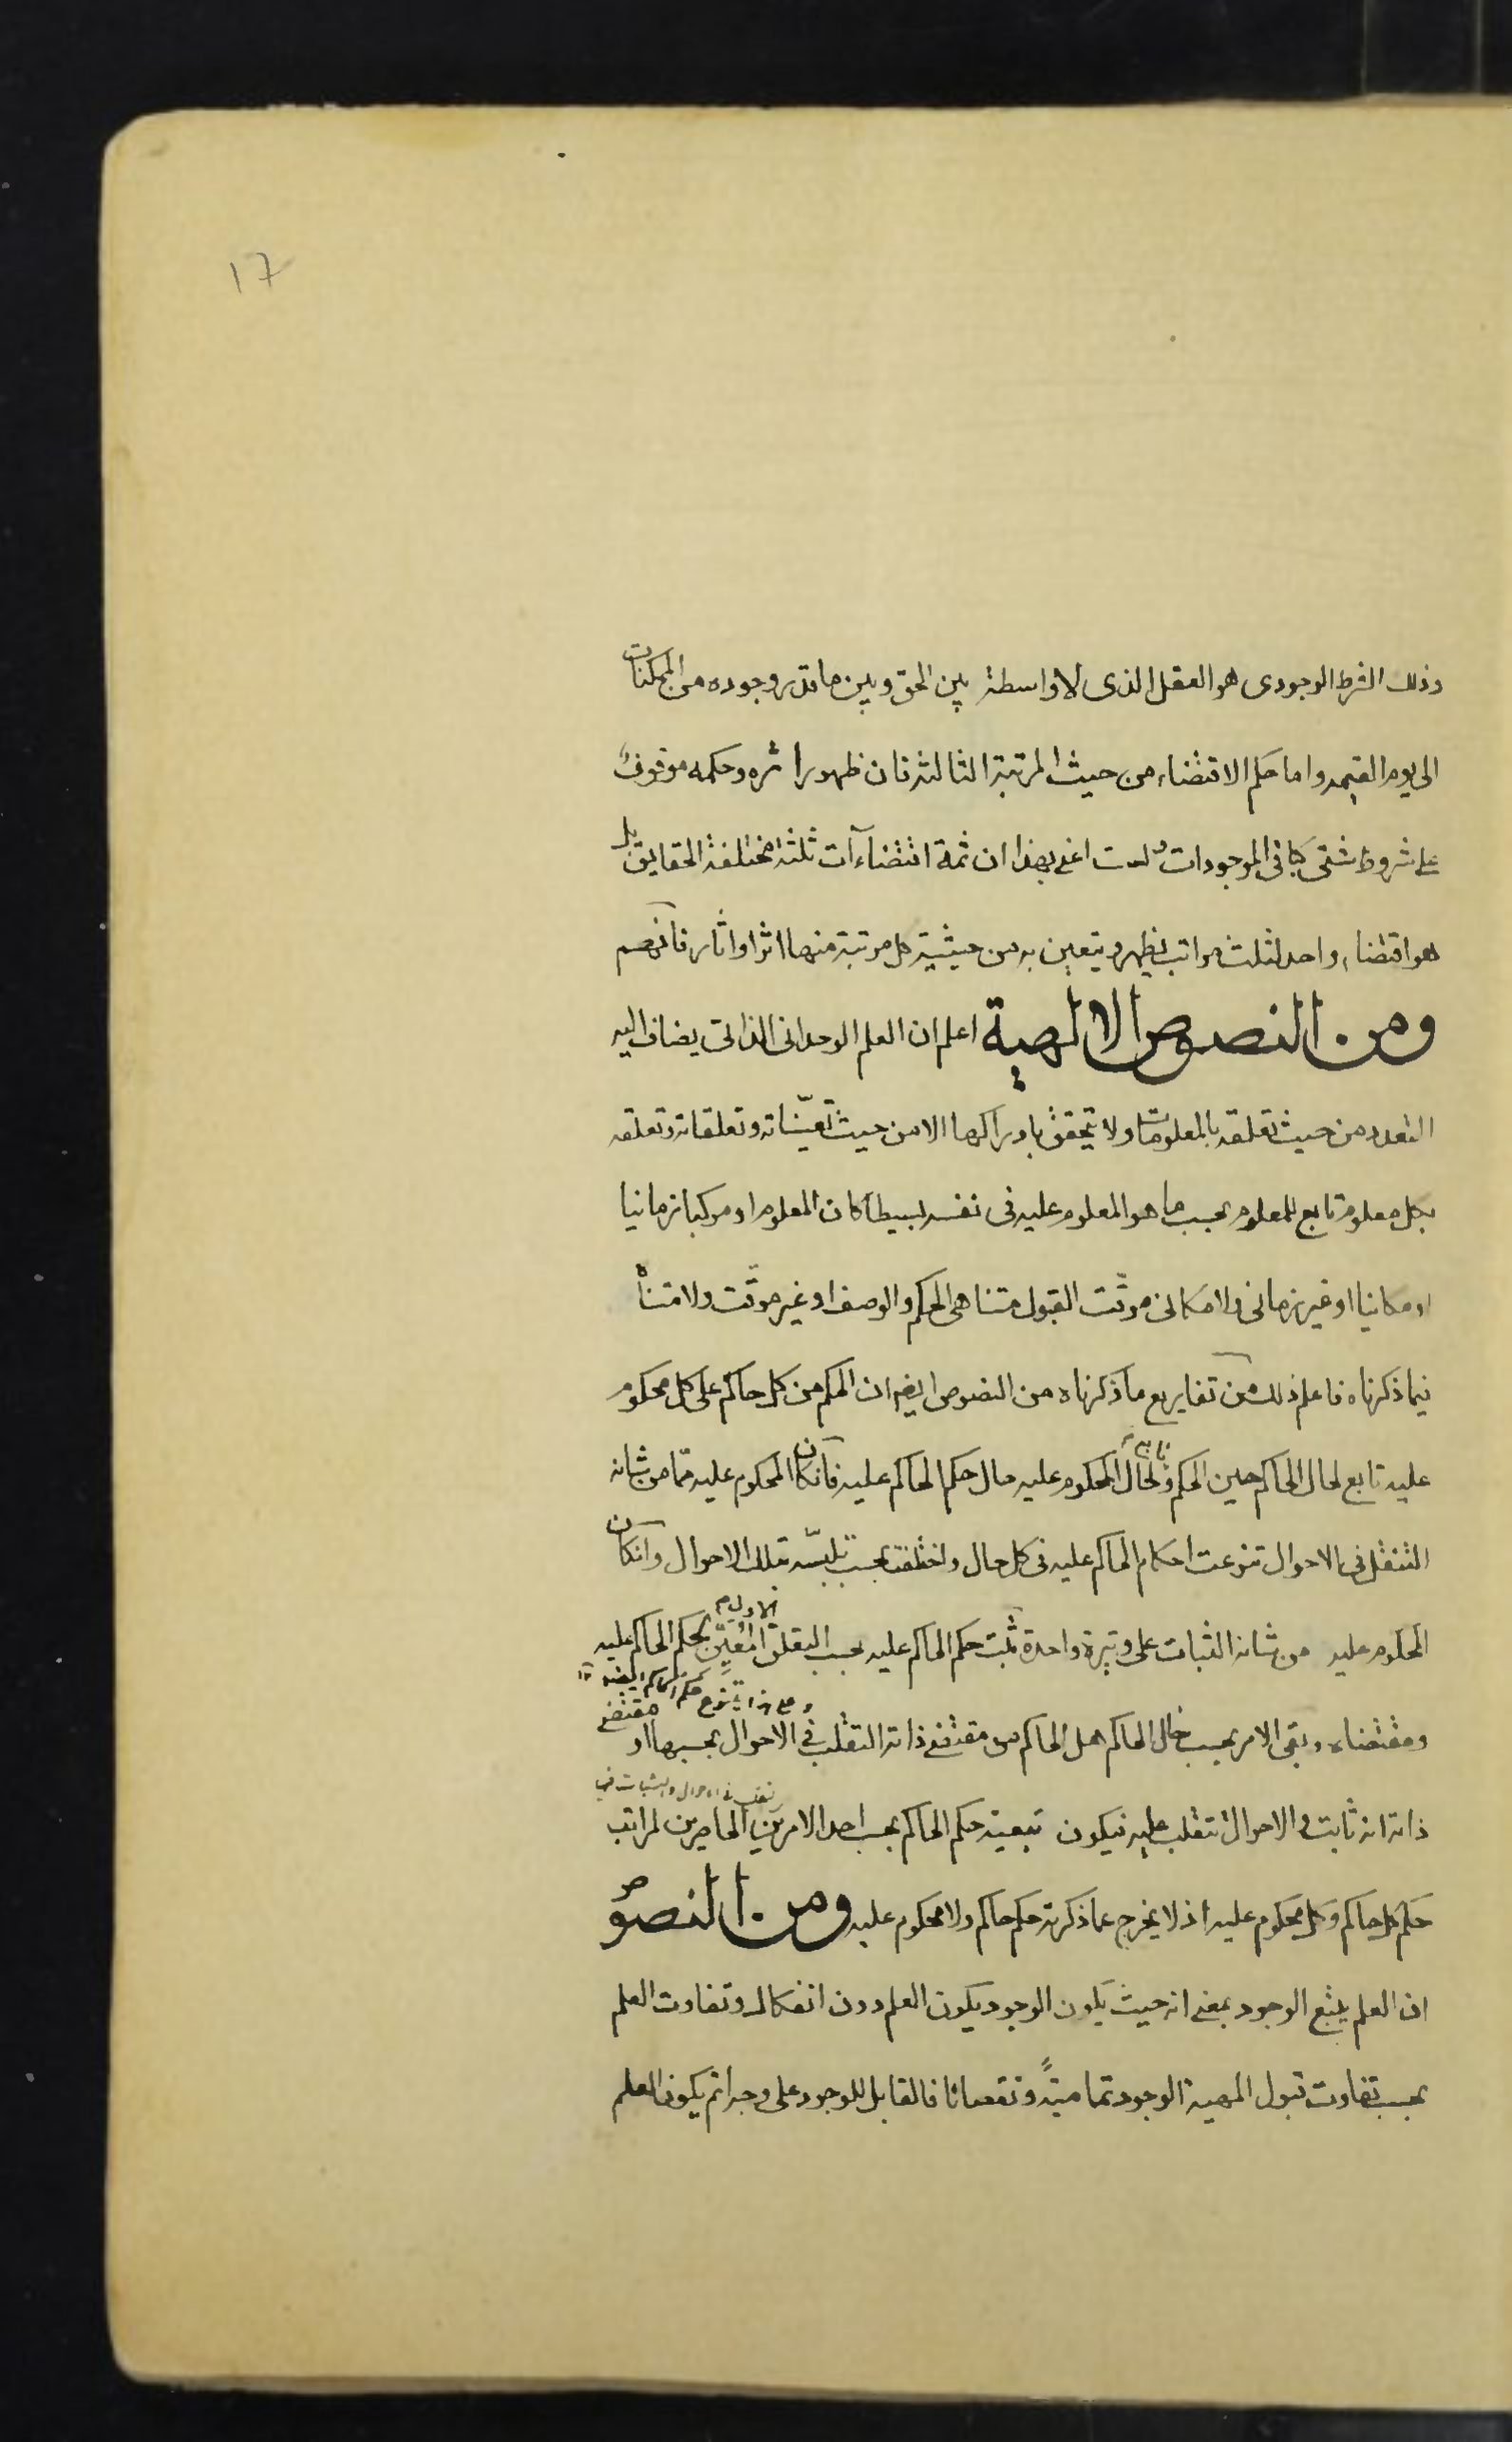 17
وذلك الشرط الوجودى هو العقل الذى لا واسطة بين الحق وبين ما قدر وجوده من الممكنات
الى يوم القيمه واما حكم الاقتضاء من حيث المرتبة الثالثه فان ظهور اثره وحكمه موقوف
على شروط شتى كباقى الموجودات ولست اعنى بهذا ان ثمة اقتضاآت ثلثة مختلفة الحقايق بل
هو اقتضاء واحد لثلث مراتب يظهر ويتعين به من حيثية كل مرتبة منها اثرا واثار فافهم
ومن النصوص الالهية اعلم ان العلم الوحدانى الذاتى يضاف اليه
التعدد من حيث تعلقه بالمعلومات ولا يتحقق بادراكها الا من حيث تعيّناته وتعلقاته وتعلقه
بكل معلوم تابع للمعلوم بحسب ما هو المعلوم عليه فى نفسه بسيطا كان المعلوم او مركبا زمانيا
او مكانيا او غير زمانى ولا مكانى موقّت القبول متناهى الحكم والوصف او غير موقّت ولا متناه
فيما ذكرناه فاعلم ذلك من تفاريع ما ذكرناه من النصوص ايضا ان الحكم من كل حاكم على كل محكوم
عليه تابع لحال الحاكم حين الحكم و تابع لحال المحكوم عليه حال حكم الحاكم عليه فانكان المحكوم عليه ممّا من شانه
التنقل فى الاحوال تنوعت احكام الحاكم عليه فى كل حال واختلفت بحسب تلبسّه بتلك الاحوال وانكان
المحكوم عليه من شانه الثبات على وتيرة واحدة ثبت حكم الحاكم عليه بحسب التعلق الاول المعيّن بحكم الحاكم عليه
وعلى هذا يتنوع حكم الحاكم ايضا
ومقتضاه وبقى الامر بحسب حال الحاكم هل الحاكم من مقتضى ذاته التقلب فى الاحوال بحسبها او مقتضى
ذاته انه ثابت والاحوال تتقلب عليه فيكون تبعية حكم الحاكم بحسب احد الامرين الحاصرين لمراتب
حكم كل حاكم وكل محكوم عليه اذ لا يخرج عما ذكرته حكم حاكم ولا محكوم عليه ومن النصوص
ان العلم يتبع الوجود بمعنى انه حيث يكون الوجود يكون العلم دون انفكاك وتفاوت العلم
بحسب تفاوت قبول المهية الوجود تماميةً ونقصانا فالقابل للوجود على وجه اتم يكون العلم